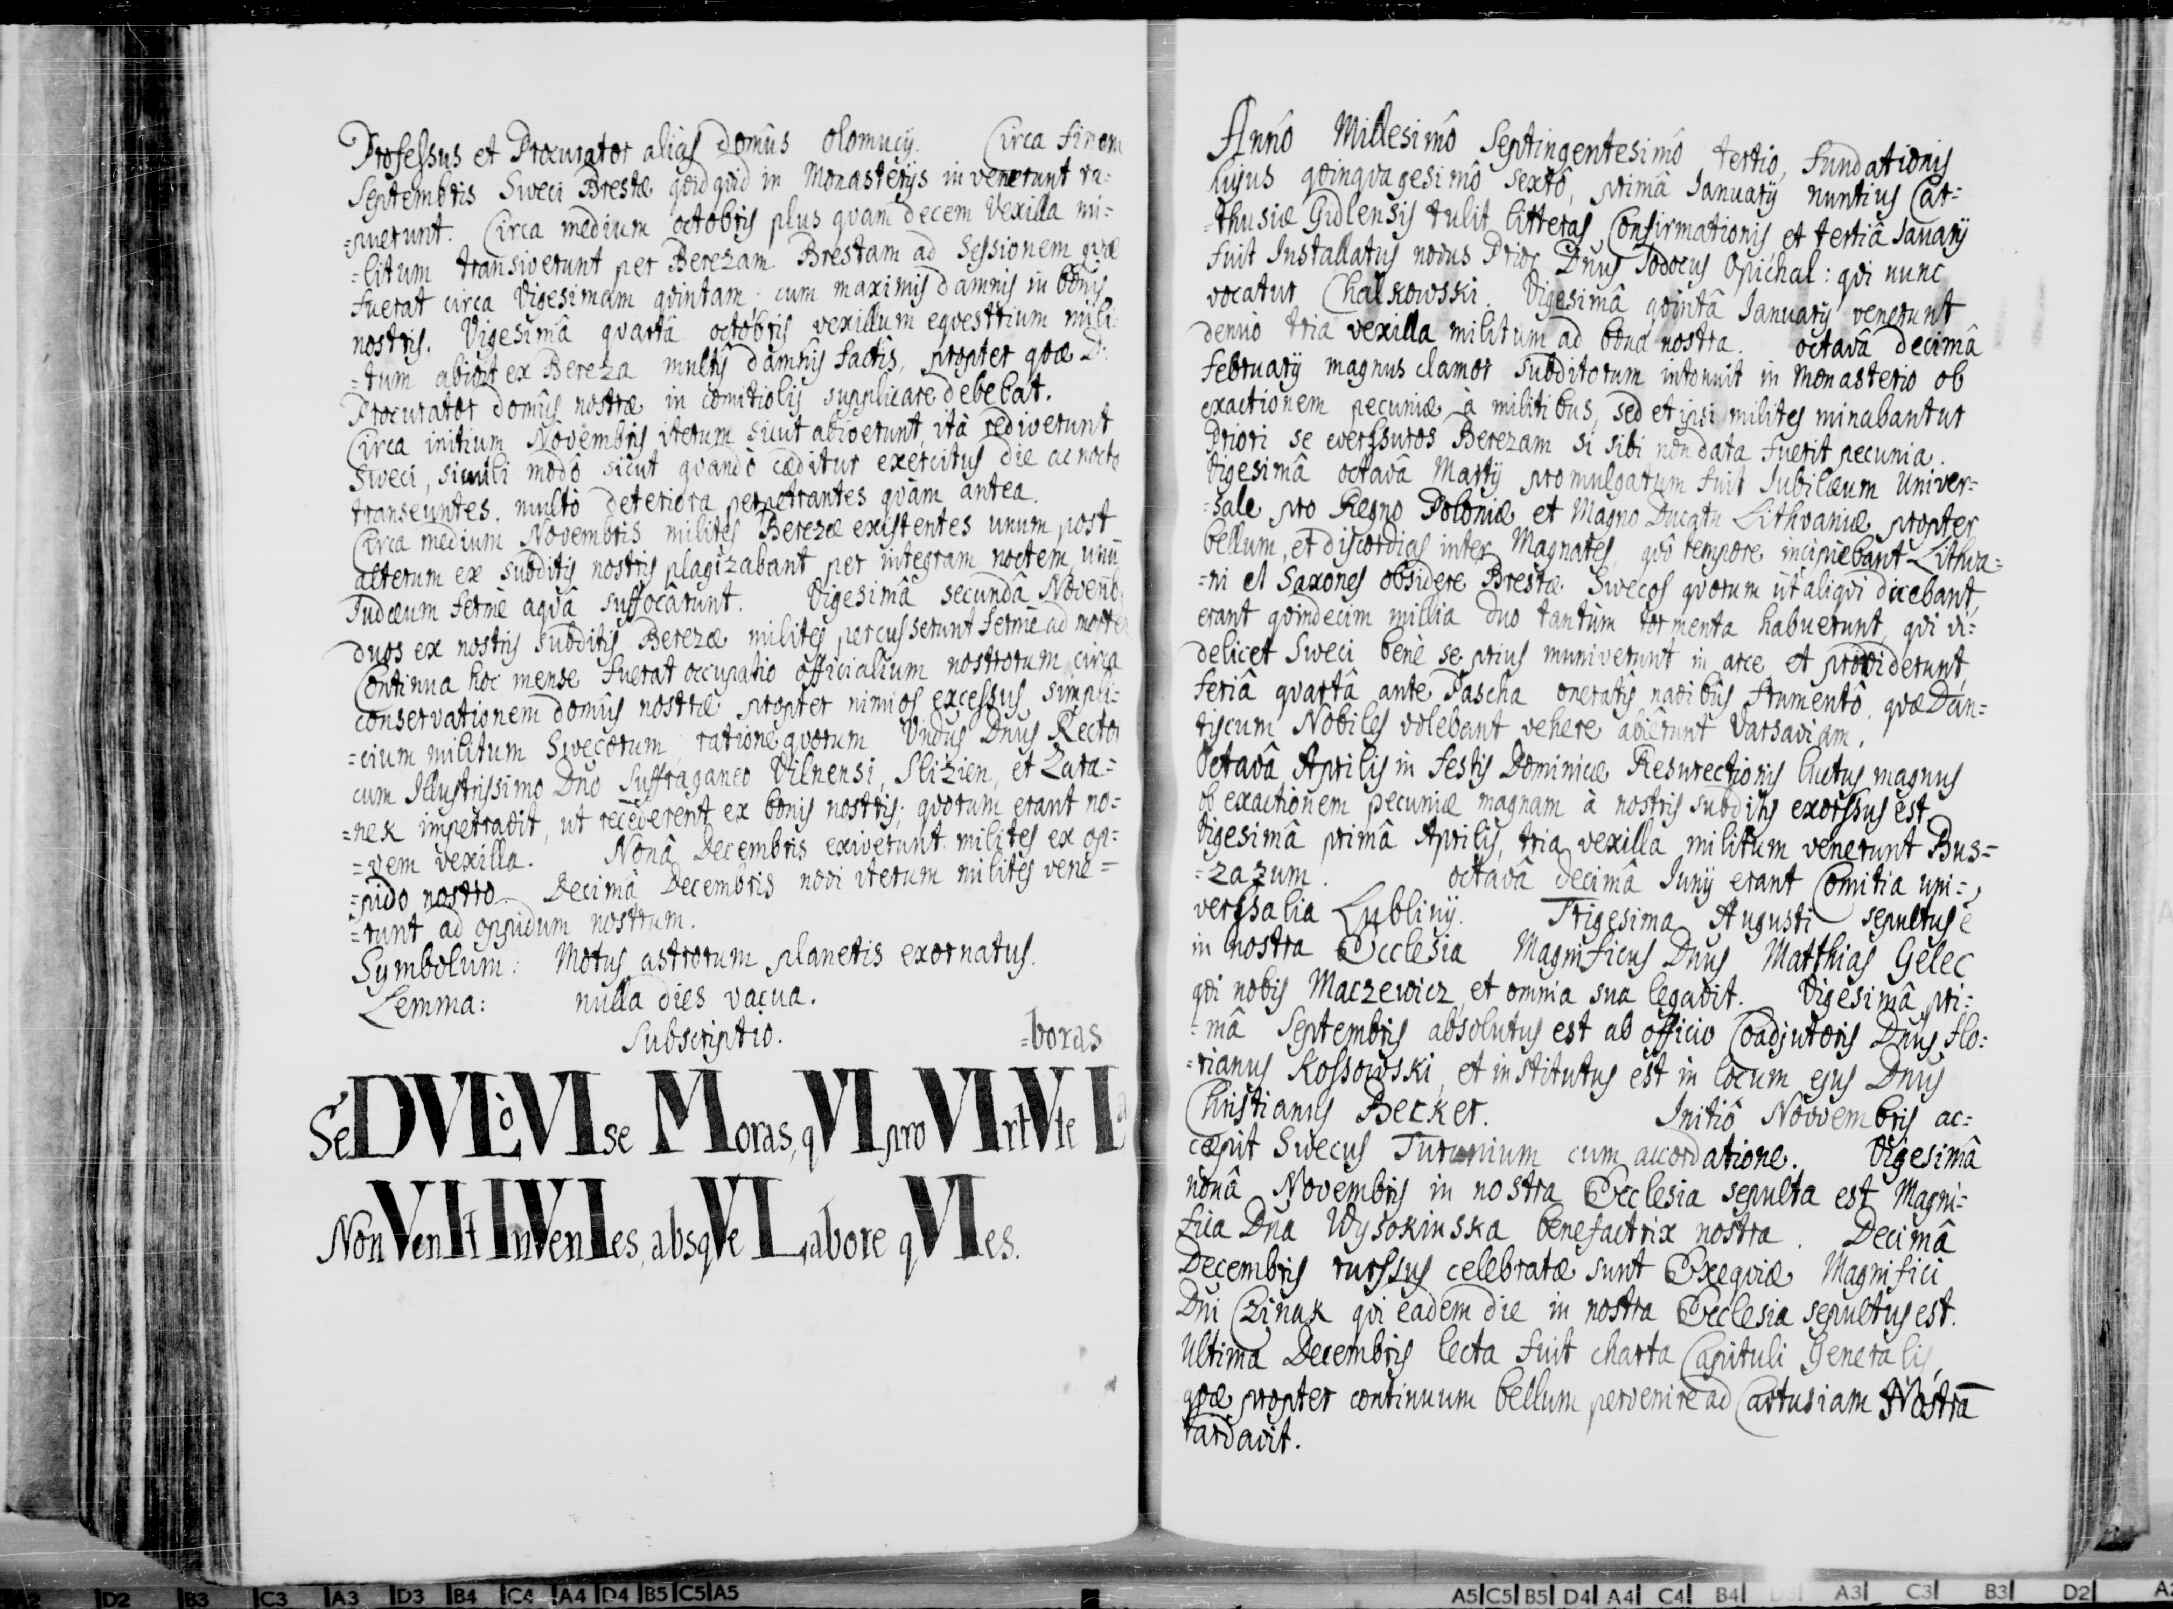 Professus et Procurator aliàs Domûs Olomucij. Circa finem
Septembris Sweci Brestæ qvidqvid in Monasterijs invenerunt ra=
=puerunt. Circa medium octobris plus qvam decem Vexilla mi=
=litum transiverunt per Berezam Brestam ad Sessionem qvæ
fuerat circa Vigesimam qvintam. cum maximis damnis in bonis
nostris. Vigesimâ qvartâ octobris vexillum eqvestrium mili=
=tum abivit ex Bereza multis damnis factis, propter qvæ D:
Procurator domûs nostræ in comitiolis supplicare debebat.
Circa initium Novembris iterum sicut abiverunt, ità rediverunt
Sweci, simili modô sicut qvandò cæditur exercitus die ac nocte
transeuntes. multò deteriora perpetrantes qvàm antea.
Circa medium Novembris milites Berezæ existentes unum post
alterum ex subditis nostris plagizabant per integram noctem, unū
Judæum fermè aqvâ suffocârunt. Vigesimâ secundâ Novemb.
duos ex nostris subditis Berezæ milites percusserunt fermè ad mortem
Continua hoc mense fuerat occupatio officialium nostrorum circa
conservationem domûs nostræ propter nimios excessus simpli=
=cium militum Swecorum, ratione qvorum Vndus Dnus Rector
cum Illustrissimo Dno Suffraganeo Vilnensi, Slizien, et Zara=
=nek impetravit, ut recederent ex bonis nostris; qvorum erant no=
=vem vexilla. Nonâ Decembris exiverunt milites ex op=
=pido nostro. Decimâ Decembris novi iterum milites vene=
=runt ad oppidum nostrum.
Symbolum: Motus astrorum planetis exornatus.
Lemma: nulla dies vacua.
Subscriptio.
=boras
SeDVLò VIse Moras, qVI pro VIrtVte La
Non VenIt InVenIes, absqVe Labore qVIes.
Annô Millesimô Septingentesimô tertio, fundationis
hujus qvinqvagesimô sextô, primâ Januarij nuntius Car=
=thusiæ Gidlensis tulit litteras Confirmationis et tertiâ Januarij
fuit Installatus novus Prior Dnus Jodocus Opichal: qvi nunc
vocatur Chalkowski. Vigesimâ qvintâ Januarij venerunt
denuò tria vexilla militum ad bona nostra. octavâ decimâ
February magnus clamor subditorum intonuit in Monasterio ob
exactionem pecuniæ à militibus, sed et ipsi milites minabantur
Priori se everssuros Berezam si sibi non data fuerit pecunia.
Vigesimâ octavâ Martij promulgatum fuit Jubilæum Univer=
=sale pro Regno Poloniæ et Magno Ducatu Lithvaniæ propter
bellum, et discordias inter Magnates, qvô tempore incipiebant Lithva=
=ni et Saxones obsidere Brestæ Swecos qvorum ut aliqvi dicebant,
erant qvindecim millia duo tantùm tormenta habuerunt, qvi vi=
delicet Sweci benè se prius muniverunt in arce et providerunt,
feriâ qvartâ ante Pascha oneratis navibus frumentô, qvæ Dan=
tiscum Nobiles volebant vehere abierunt Varsaviam.
Octavâ Aprilis in festis Dominicæ Resurectionis luctus magnus
ob exactionem pecuniæ magnam à nostris subditis exorssus est
Vigesimâ primâ Aprilis, tria vexilla militum venerunt Bus=
=zazum. octavâ decimâ Junij erant Comitia uni=
verssalia Lublinij. Trigesima Augusti sepultus ē
in nostra Ecclesia Magnificus Dnus Matthias Gelec
qvi nobis Maczewicz, et omnia sua legavit. Vigesimâ pri=
=mâ Septembris absolutus est ab officio Coadjutoris Dnus Flo=
=rianus Kossowski, et institutus est in locum ejus Dnus
Christianus Becker. Initiô Novvembris ac=
cæpit Swecus Turunium cum accordatione. Vigesimâ
nonâ Novembris in nostra Ecclesia sepulta est Magni=
fica Dna Wysokinska benefactrix nostra. Decimâ
Decembris rurssus celebratæ sunt Exeqviæ Magnifici
Dni Czinak qvi eadem die in nostra Ecclesia sepultus est.
Ultima Decembris lecta fuit charta Capituli Generalis,
qvæ propter continuum bellum pervenire ad Cartusiam Nostrā
tardavit.